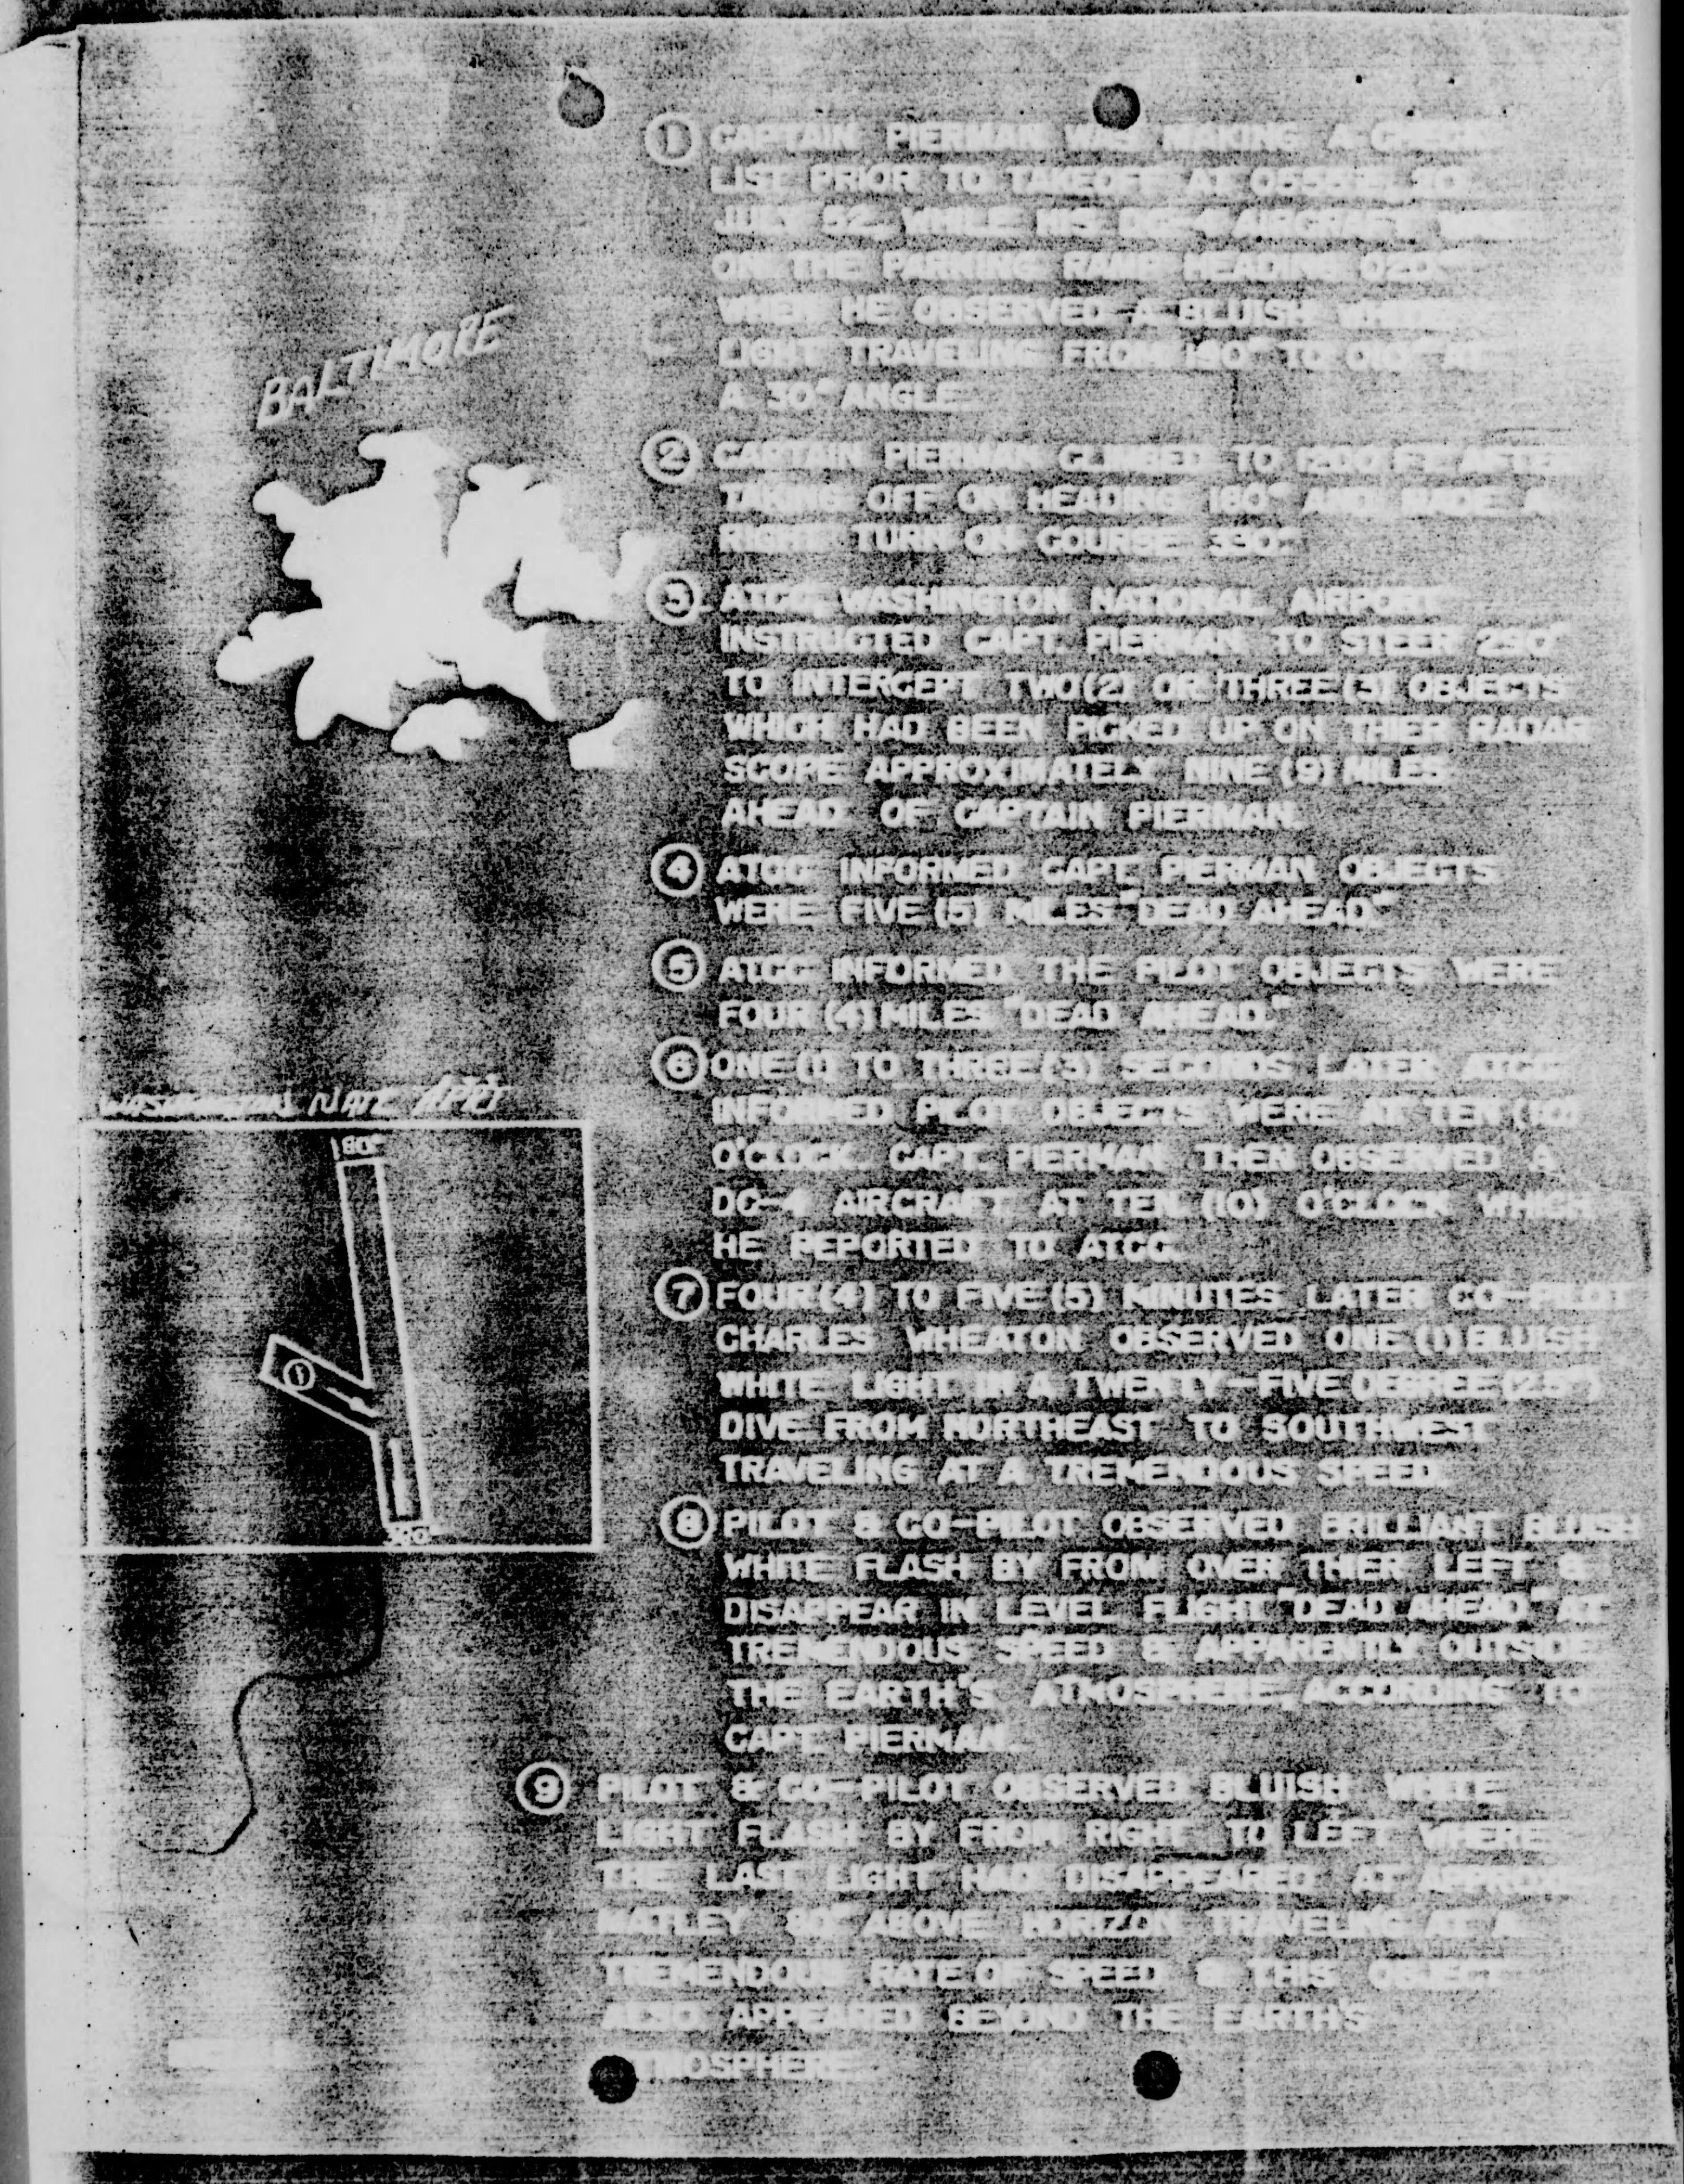 BALTIMORE
① CAPTAIN PIERMAN WAS MAKING A CHECK
LIST PRIOR TO TAKEOFF AT 20
JULY 52 WHILE HIS DC-4 AIRCRAFT WAS
ON THE PARKING RAMP HEADING 020°
WHEN HE OBSERVED A BLUISH WHITE
LIGHT TRAVELING FROM TO AT
A 30° ANGLE
② CAPTAIN PIERMAN CLIMBED TO 1200 FT AFTER
TAKING OFF ON HEADING 180° AND MADE A
RIGHT TURN ON COURSE 330°
③ ATCC, WASHINGTON NATIONAL AIRPORT
INSTRUCTED CAPT. PIERMAN TO STEER 290°
TO INTERCEPT TWO(2) OR THREE(3) OBJECTS
WHICH HAD BEEN PICKED UP ON THIER RADAR
SCOPE APPROXIMATELY NINE (9) MILES
AHEAD OF CAPTAIN PIERMAN.
④ ATCC INFORMED CAPT. PIERMAN OBJECTS
WERE FIVE (5) MILES "DEAD AHEAD"
⑤ ATCC INFORMED THE PILOT OBJECTS WERE
FOUR (4) MILES "DEAD AHEAD."
⑥ ONE (1) TO THREE (3) SECONDS LATER ATCC
INFORMED PILOT OBJECTS WERE AT TEN (10)
O'CLOCK. CAPT. PIERMAN THEN OBSERVED A
DC-4 AIRCRAFT AT TEN (10) O'CLOCK WHICH
HE REPORTED TO ATCC.
⑦ FOUR(4) TO FIVE(5) MINUTES LATER CO-PILOT
CHARLES WHEATON OBSERVED ONE (1) BLUISH
WHITE LIGHT IN A TWENTY-FIVE DEGREE (25°)
DIVE FROM NORTHEAST TO SOUTHWEST
TRAVELING AT A TREMENDOUS SPEED.
⑧ PILOT & CO-PILOT OBSERVED BRILLIANT BLUISH
WHITE FLASH BY FROM OVER THIER LEFT &
DISAPPEAR IN LEVEL FLIGHT "DEAD AHEAD" AT
TREMENDOUS SPEED & APPARENTLY OUTSIDE
THE EARTH'S ATMOSPHERE, ACCORDING TO
CAPT. PIERMAN.
⑨ PILOT & CO-PILOT OBSERVED BLUISH WHITE
LIGHT FLASH BY FROM RIGHT TO LEFT WHERE
THE LAST LIGHT HAD DISAPPEARED AT APPROXI-
MATLEY ABOVE HORIZON TRAVELING AT A
TREMENDOUS RATE OF SPEED THIS OBJECT
ALSO APPEARED BEYOND THE EARTH'S
ATMOSPHERE
WASHINGTON NATL APRT
180°
①